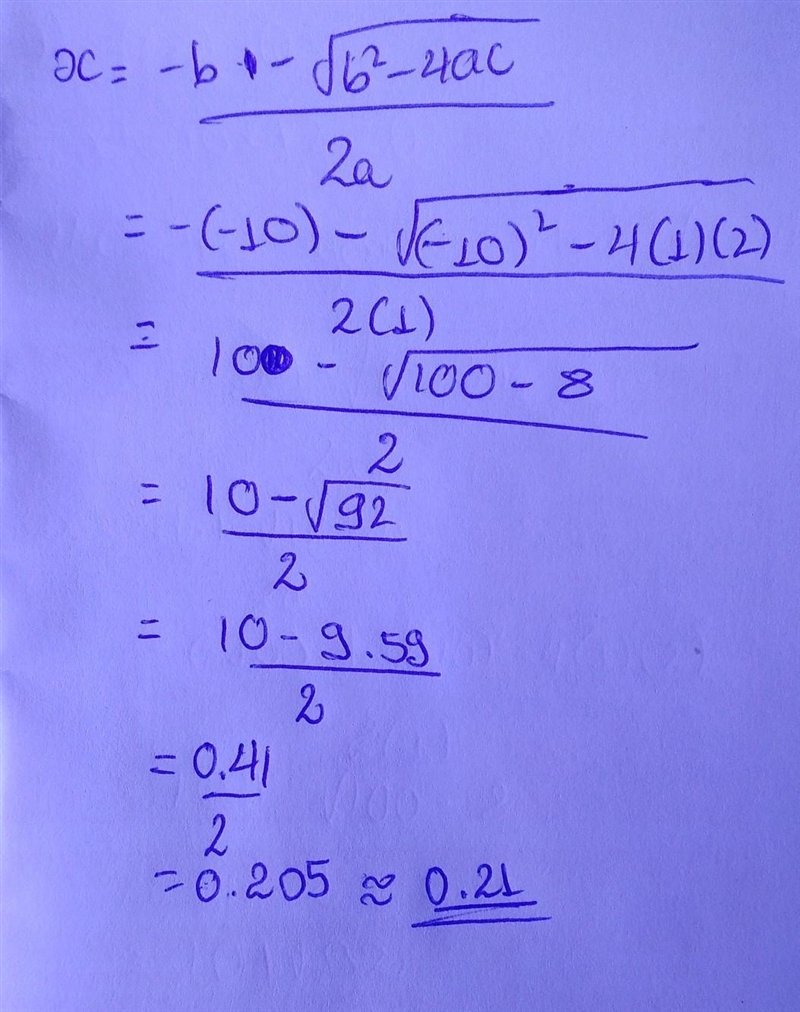 x = -b - √b² - 4ac
2a
= -(-10) - √(-10)² - 4(1)(2)
2(1)
= 10 - √100 - 8
2
= 10 - √92
2
= 10 - 9.59
2
= 0.41
2
= 0.205 ≈ 0.21